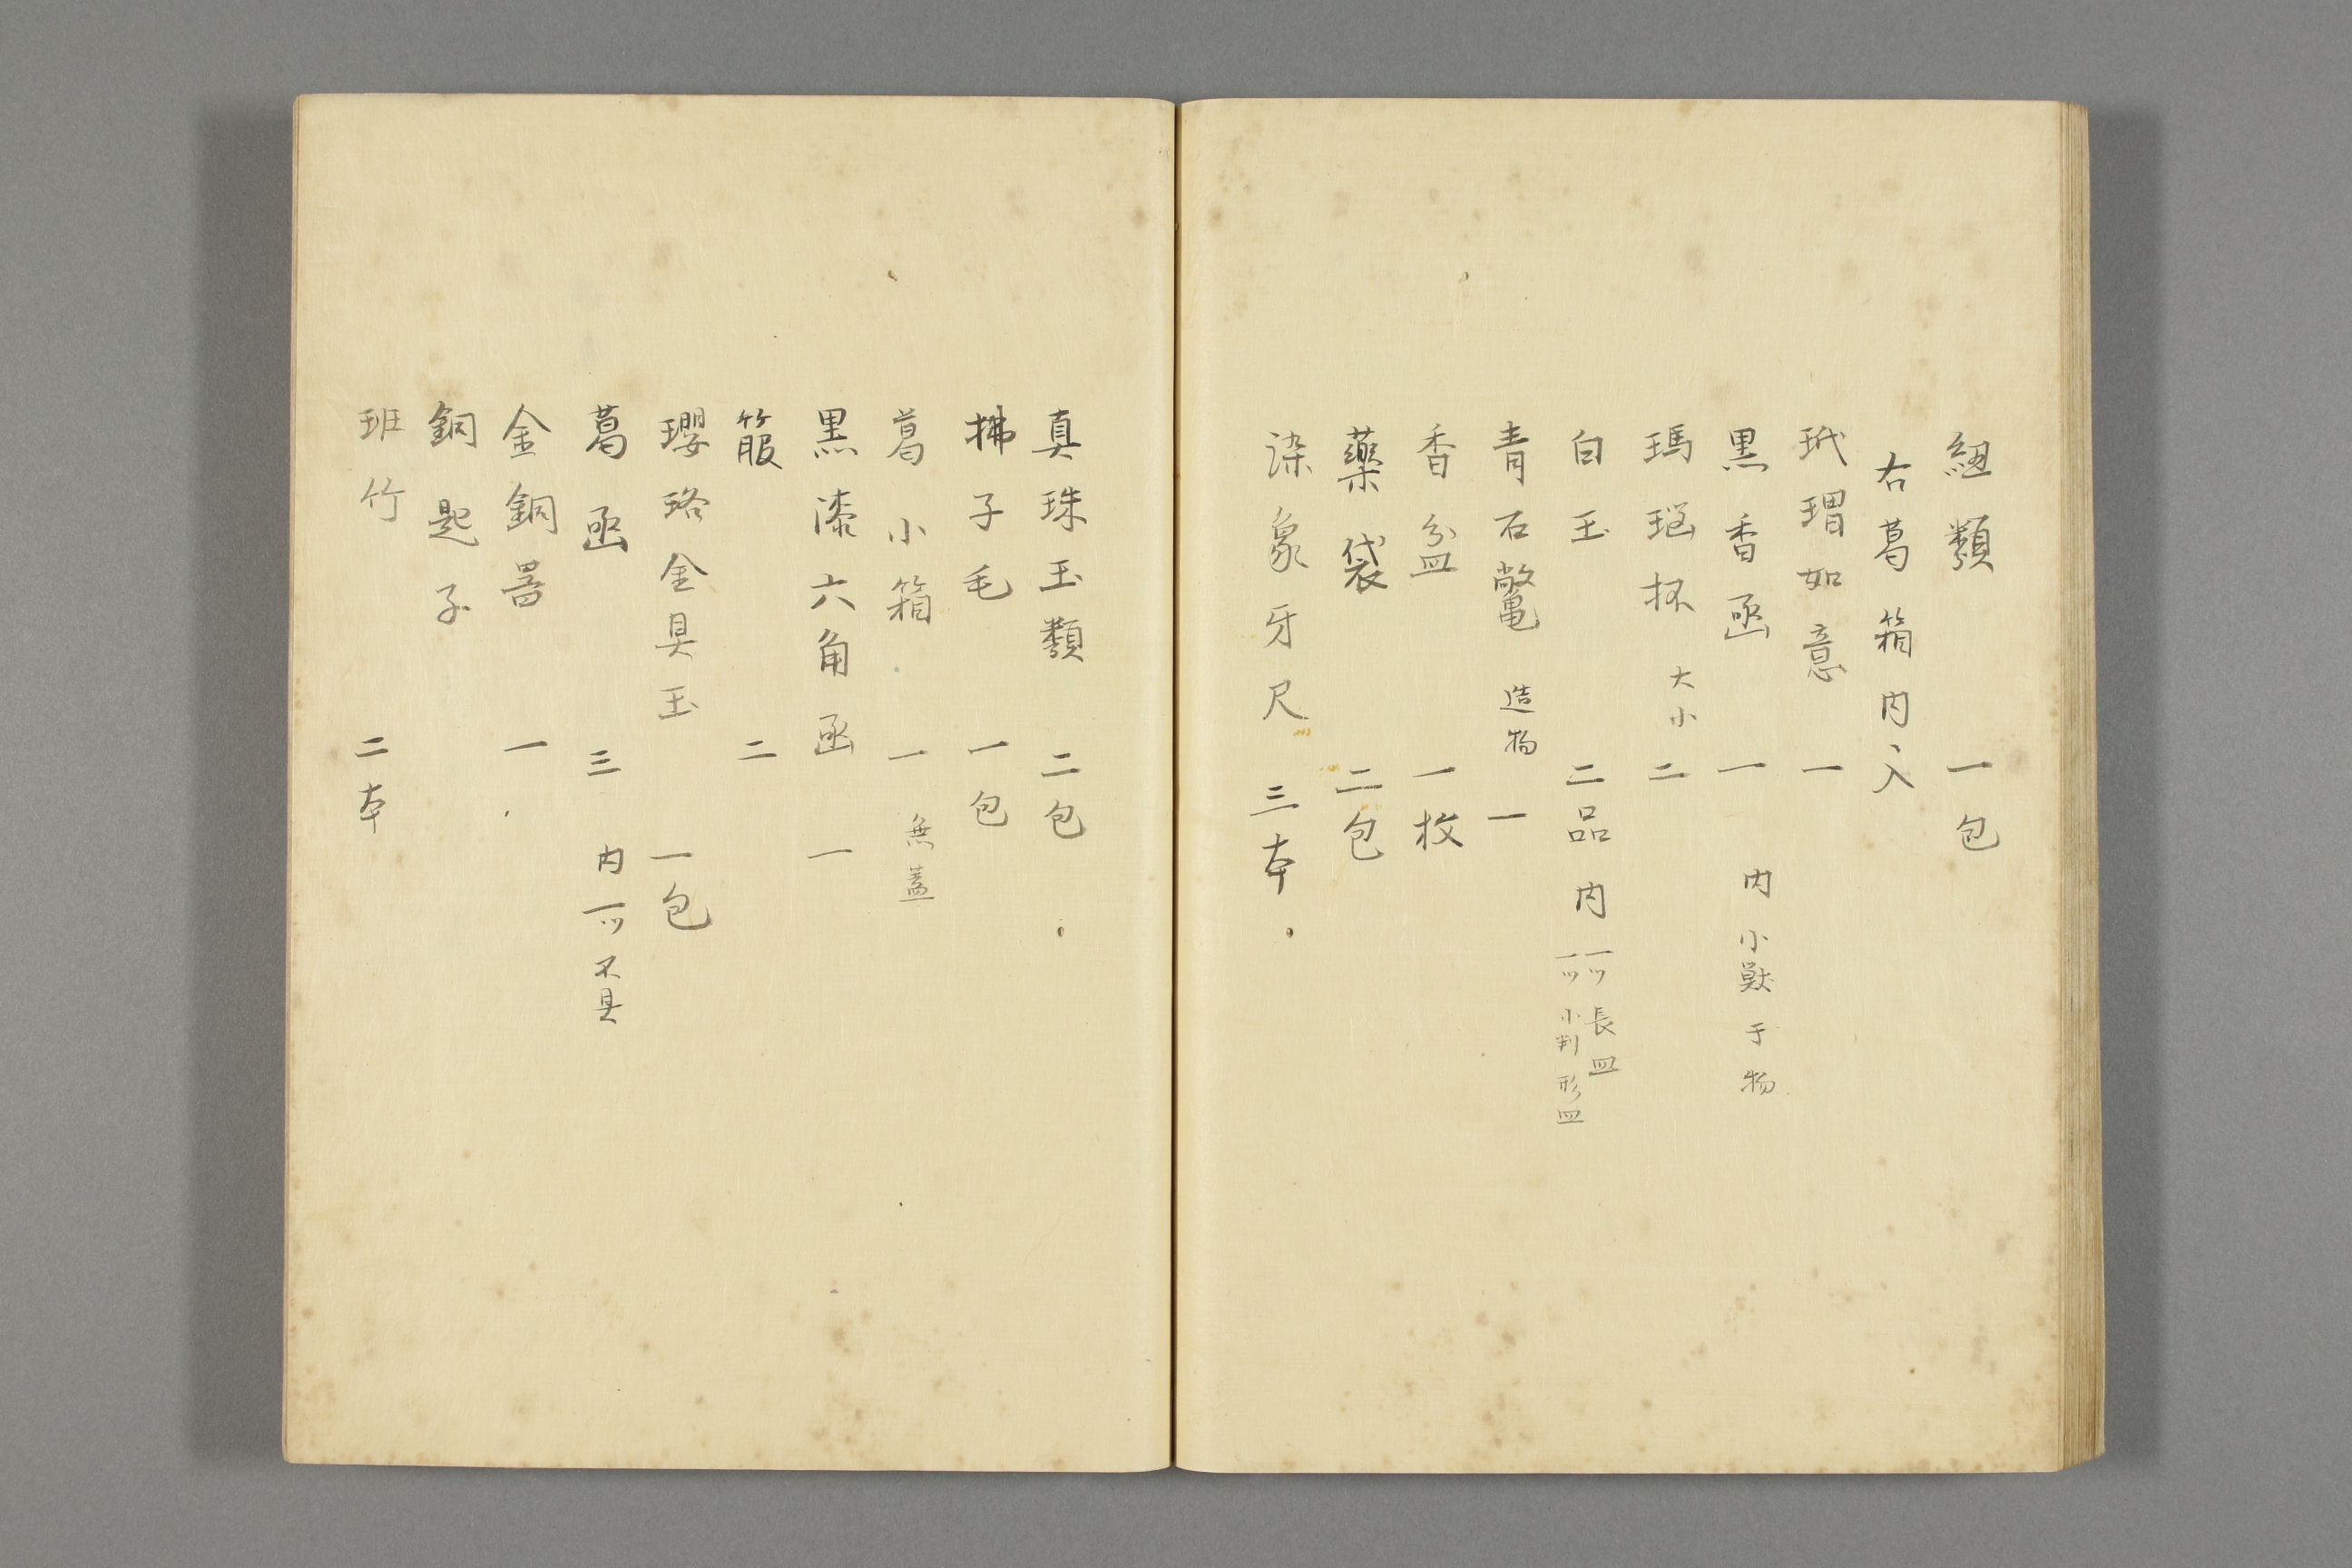 紐類 一包
右葛箱内ヘ入
玳瑁如意 一
黒香函 一 内小獣干物
瑪瑙杯 大小 二
白玉 二品 内 一ツ長皿
一ツ小判形皿
青石鼈 造物 一
香盆 一枚
薬袋 二包
染象牙尺 三本
真珠玉類 二包
拂子毛 一包
葛小箱 一 無蓋
黒漆六角函 一
箙 二
瓔珞金具玉 一包
葛函 三 内一ツ不具
金銅器 一
銅匙子
班竹 二本